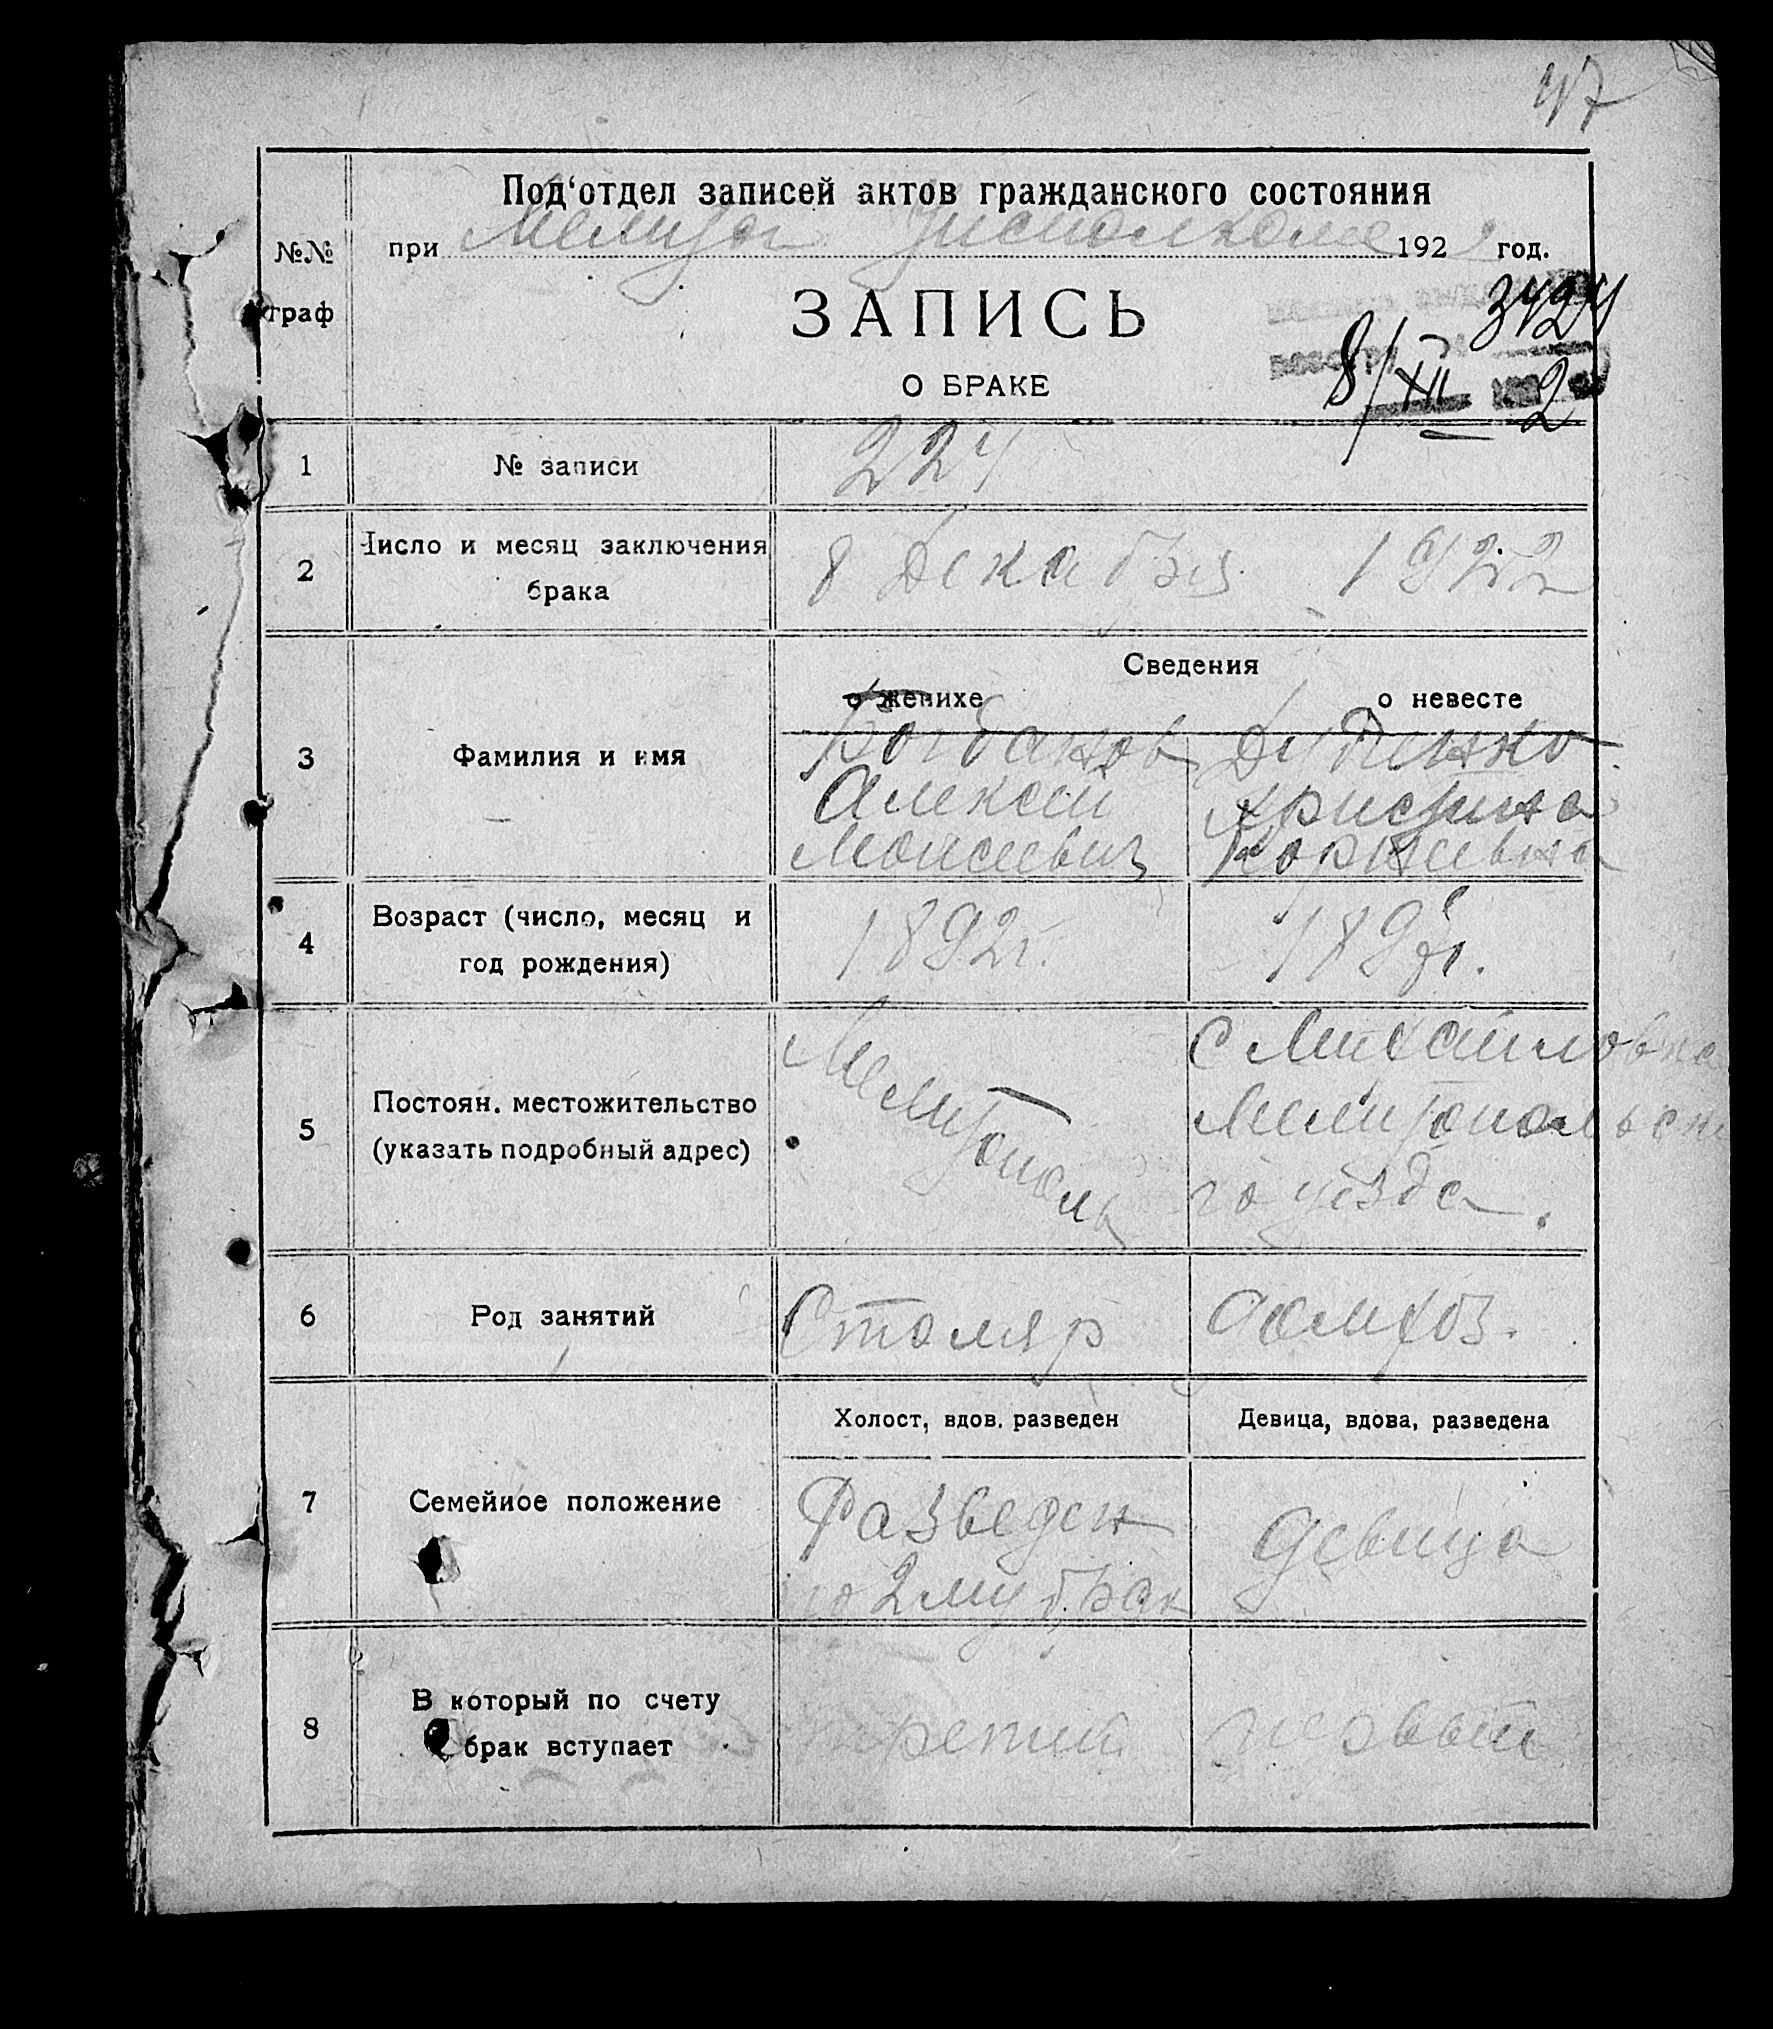 47
Под'отдел записей актов гражданского состояния
№№ при Мелитоп Уисполкоме 1922 год.
граф
ЗАПИСЬ
3424
8/XII 2
О БРАКЕ
1 № записи 224
2 Число и месяц заключения брака 8 Декабря 1922
Сведения
о женихе о невесте
3 Фамилия и имя Богданов Диденко
Алексей Христина
Моисеевич Корнеевна
4 Возраст (число, месяц и 1892г.
год рождения)
5 Постоян. местожительство Мелитополь с Михайловка
(указать подробный адрес) Мелитопольск
го уезда.
6 Род занятий Столяр домхоз.
Холост, вдов. разведен Девица, вдова, разведена
7 Семейное положение Разведен Девица
по 2му брак
8 В который по счету третий первый
брак вступает